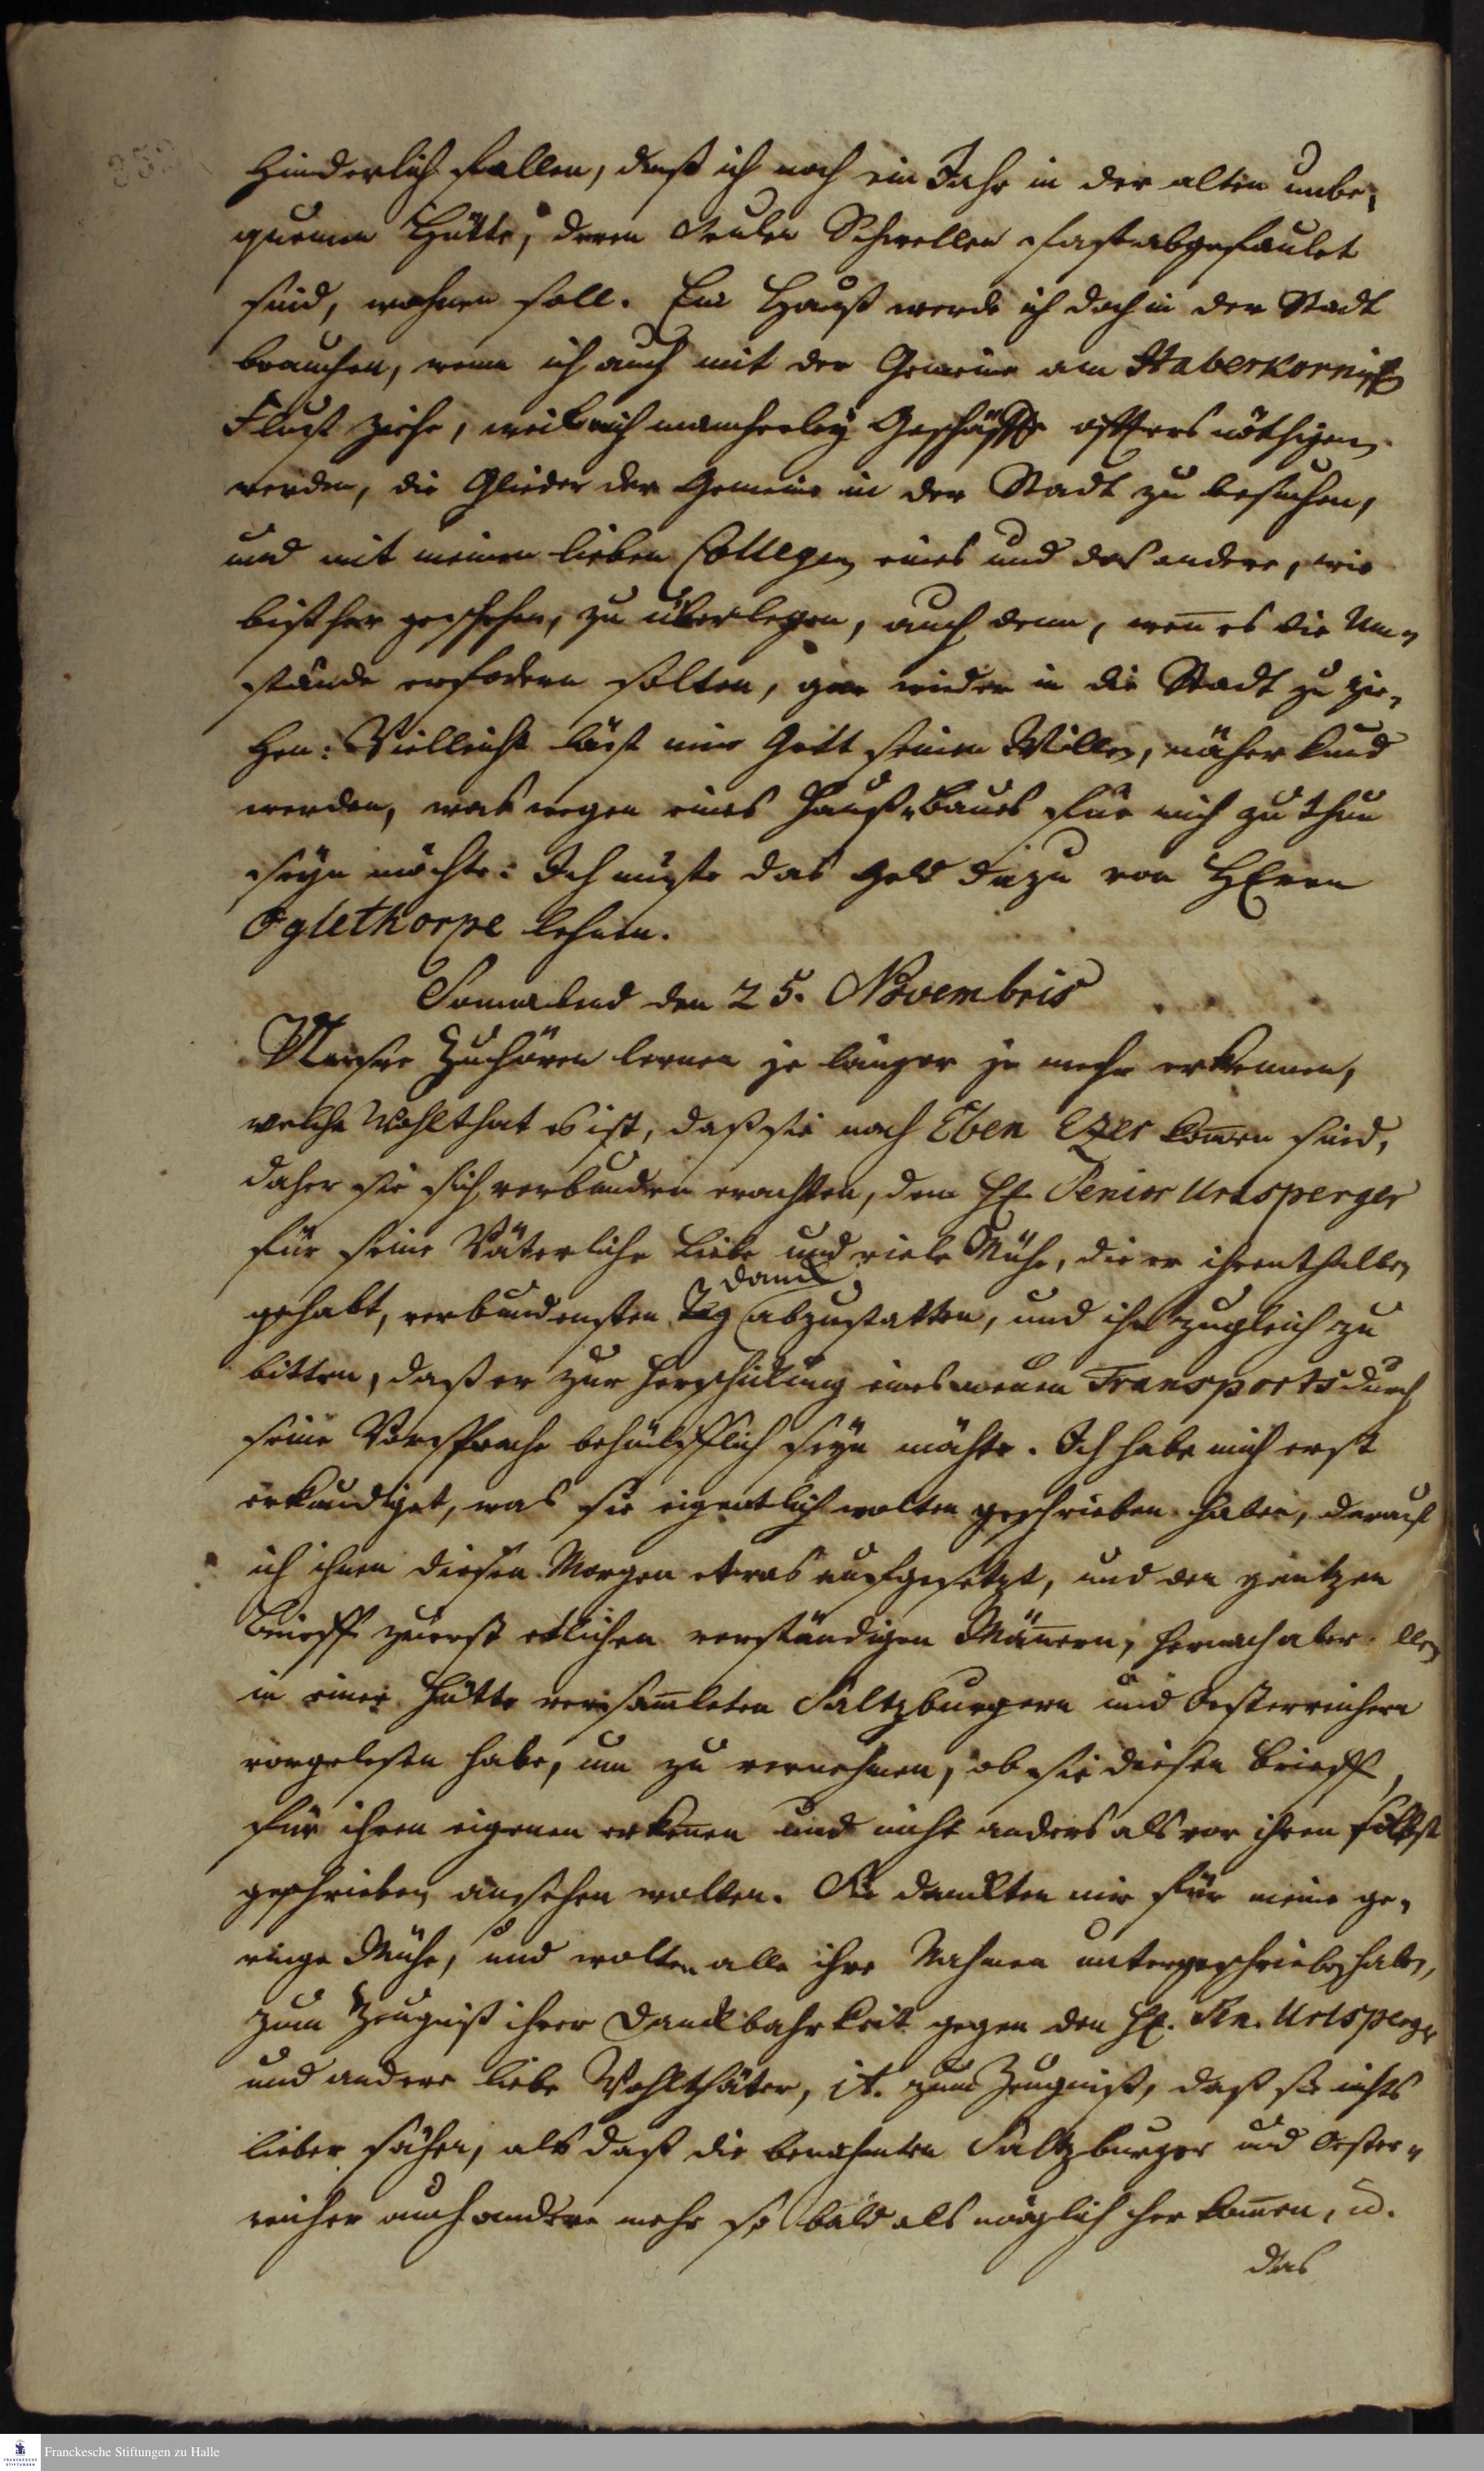 hinderlich fallen, daß ich noch ein Jahr in der alten unbe-
quemen Hütte, deren Seulen Schwellen fast abgefaulet
sind, wohnen soll. Ein Hauß werde ich doch in der Stadt
brauchen, wenn ich auch mit der Gemeine am Haberkornisch
Fluß ziehe, weil mich mancherley Geschäffte öffters nöthigen
werden, die Glieder der Gemeine in der Stadt zu besuchen,
und mit meinem lieben Collegen eines und das andere, wie
bißher geschehen, zu überlegen, auch denn, wen̄ es die Um-
stände erfodern solten, gar wieder in die Stadt zu zie-
hen: Vielleicht läst mir Gott seinen Willen, näher kund
werden, was wegen eines Hauß-Baues für mich zu thun
seyn möchte: Ich müste das Geld dazu von HErrn
Oglethorpe lehnen.
Sonnabend den 25. Novembris
Unsere Zuhörer lernen je länger je mehr erkennen,
welche Wohlthat es ist, daß sie nach Eben Ezer kom̄en sind,
daher sie sich verbunden erachten, dem H. Senior Urlsperger
für seine Väterliche Liebe und viele Mühe, die er ihrenthalben
danck
gehabt, verbundensten abzustatten, und ihn zugleich zu
bitten, daß er zur Herschickung eines neuen Transports durch
seine Vorsprache behülfflich seyn möchte. Ich habe mich erst
erkundiget, was sie eigentlich wolten geschrieben haben, darauf
ich ihnen diesen Morgen etwas aufgesetzt, und den gantzen
Brieff zuerst etlichen verständigen Män̄ern, hernach aber allen
in einer Hütte versam̄leten Saltzburgern und Oesterreichern
vorgelesen habe, um zu vernehmen, ob sie diesen Brieff,
für ihren eigenen erken̄en und nicht anders als von ihnen selbst
geschrieben ansehen wolten. Sie danckten mir für meine ge-
ringe Mühe, und wolten alle ihre Nahmen untergeschrieben haben,
zum Zeugniß ihrer Danckbahrkeit gegen den H. Sen. Urlsperger
und andere liebe Wohlthäter, it. zum Zeugniß, daß sie nichts
lieber sähen, als daß die benahmten Saltzburger und Oester-
reicher auch andere mehr so bald als möglich her kom̄en, u.
das
Franckesche Stiftungen zu Halle